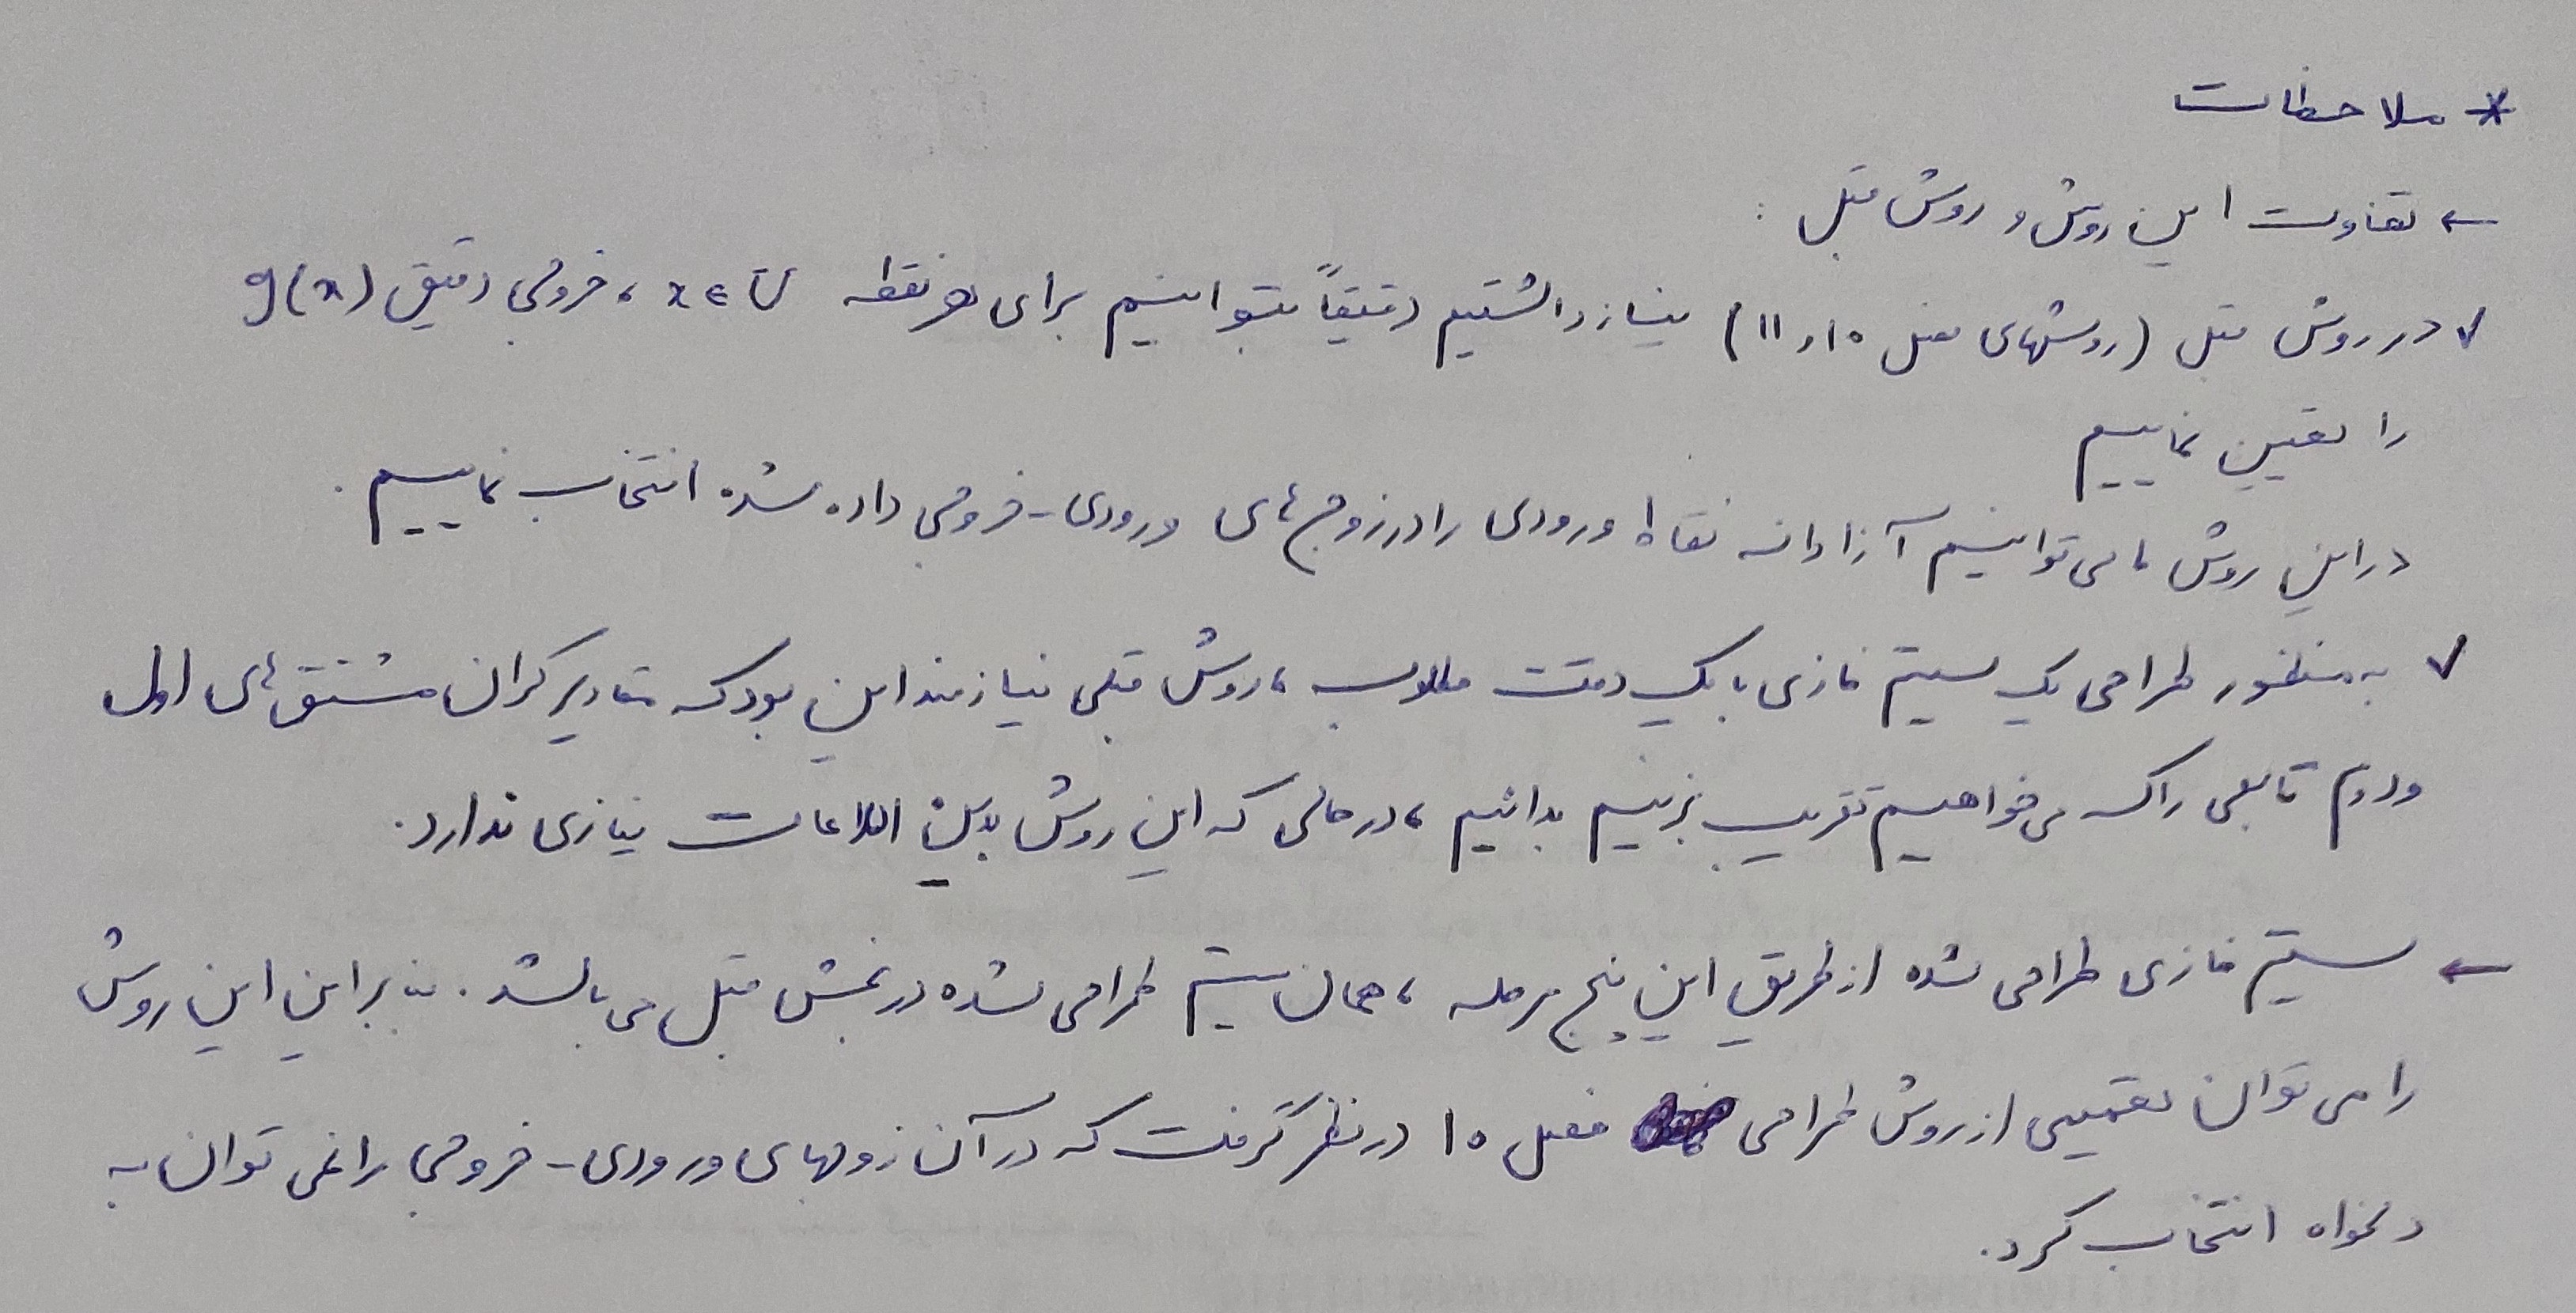 * ملاحظات
← تفاوت این روش و روش قبل :
✓ در روش قبل (روشهای فصل ۱۰ و ۱۱) نیاز داشتیم دقیقاً بتوانیم برای هر نقطه x ∈ U ، خروجی دقیق g(x)
را تعیین نماییم
در این روش ما می توانیم آزادانه نقاط ورودی را در زوج های ورودی - خروجی داده شده انتخاب نماییم .
✓ به منظور طراحی یک سیستم فازی با یک دقت مطلوب ، روش قبلی نیازمند این بود که مقادیر کران مشتق های اول
و دوم تابعی را که می خواهیم تقریب بزنیم بدانیم ، در حالی که این روش بدین اطلاعات نیازی ندارد .
← سیستم فازی طراحی شده از طریق این پنج مرحله ، همان سیستم طراحی شده در بخش قبل می باشد . بنابراین این روش
را می توان تعمیمی از روش طراحی فصل ۱۰ در نظر گرفت که در آن زوجهای ورودی - خروجی را نمی توان به
دلخواه انتخاب کرد .